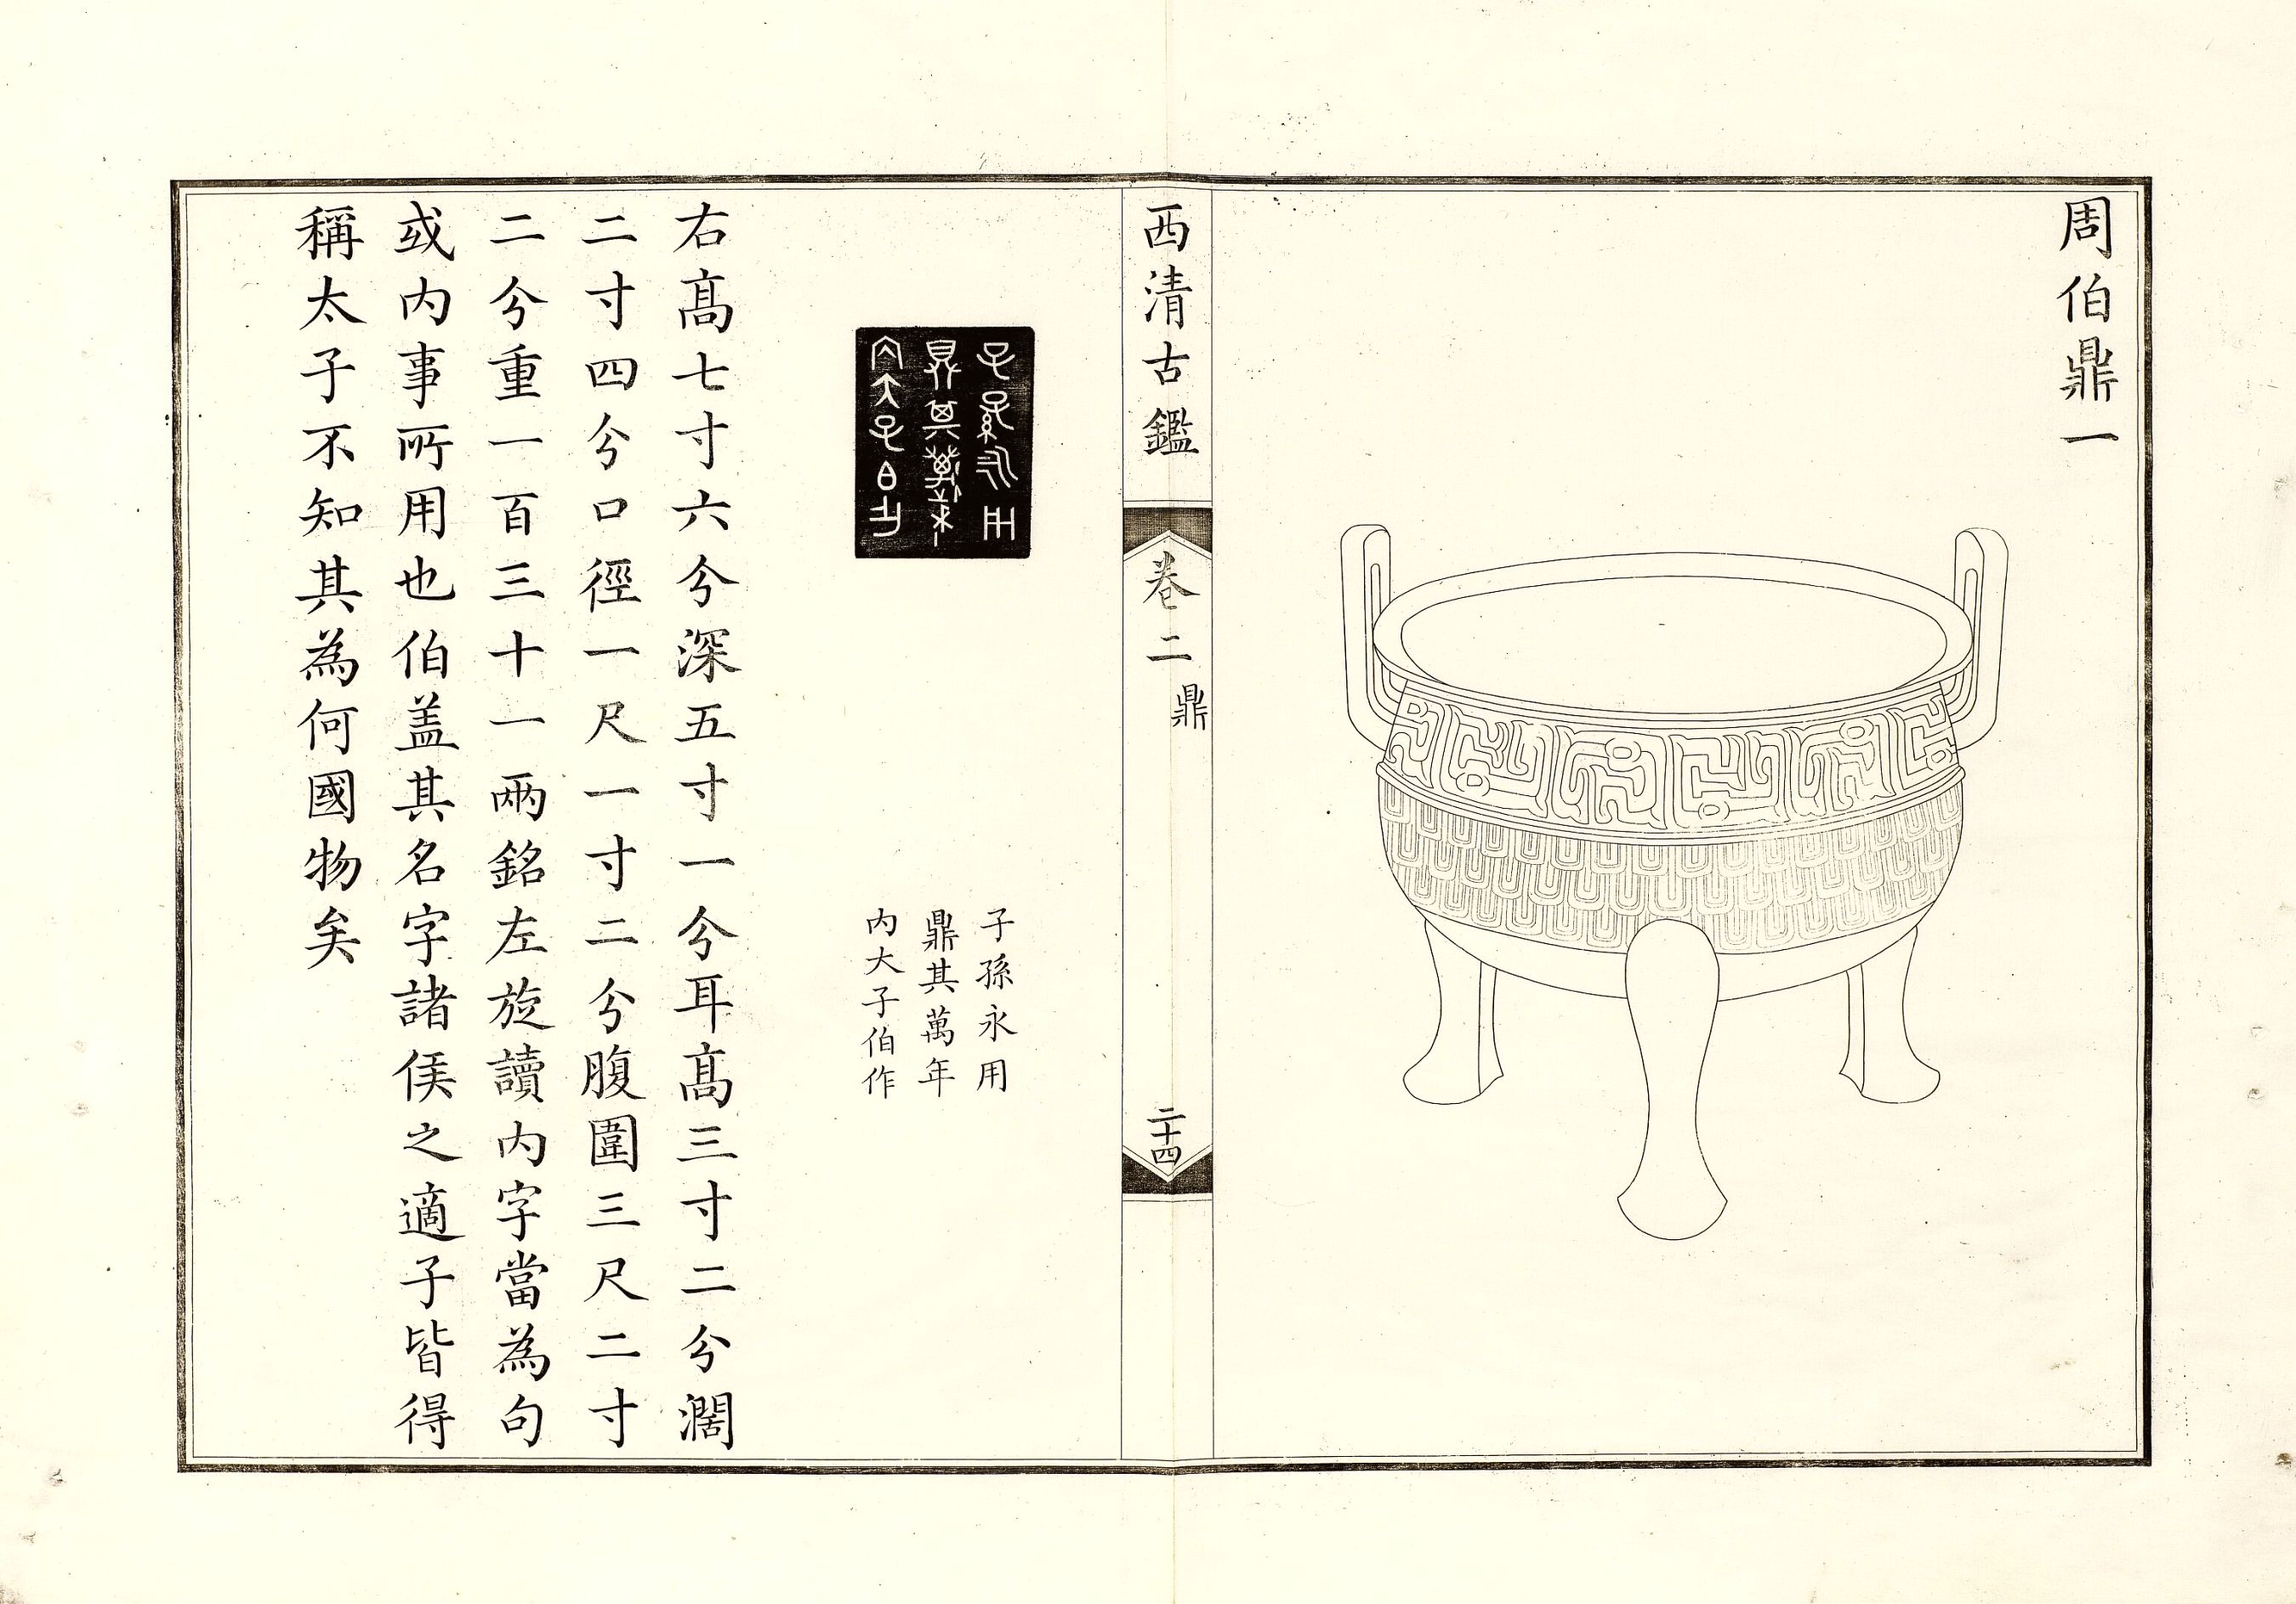 周伯鼎一
西清古鑑
卷二
鼎
二十四
子孫永用
鼎其萬年
内大子伯作
子孫永用
鼎其萬年
内大子伯作
右髙七寸六分深五寸一分耳髙三寸二分濶
二寸四分口徑一尺一寸二分腹圍三尺二寸
二分重一百三十一兩銘左旋讀内字當為句
或内事所用也伯盖其名字諸侯之適子皆得
稱太子不知其為何國物矣